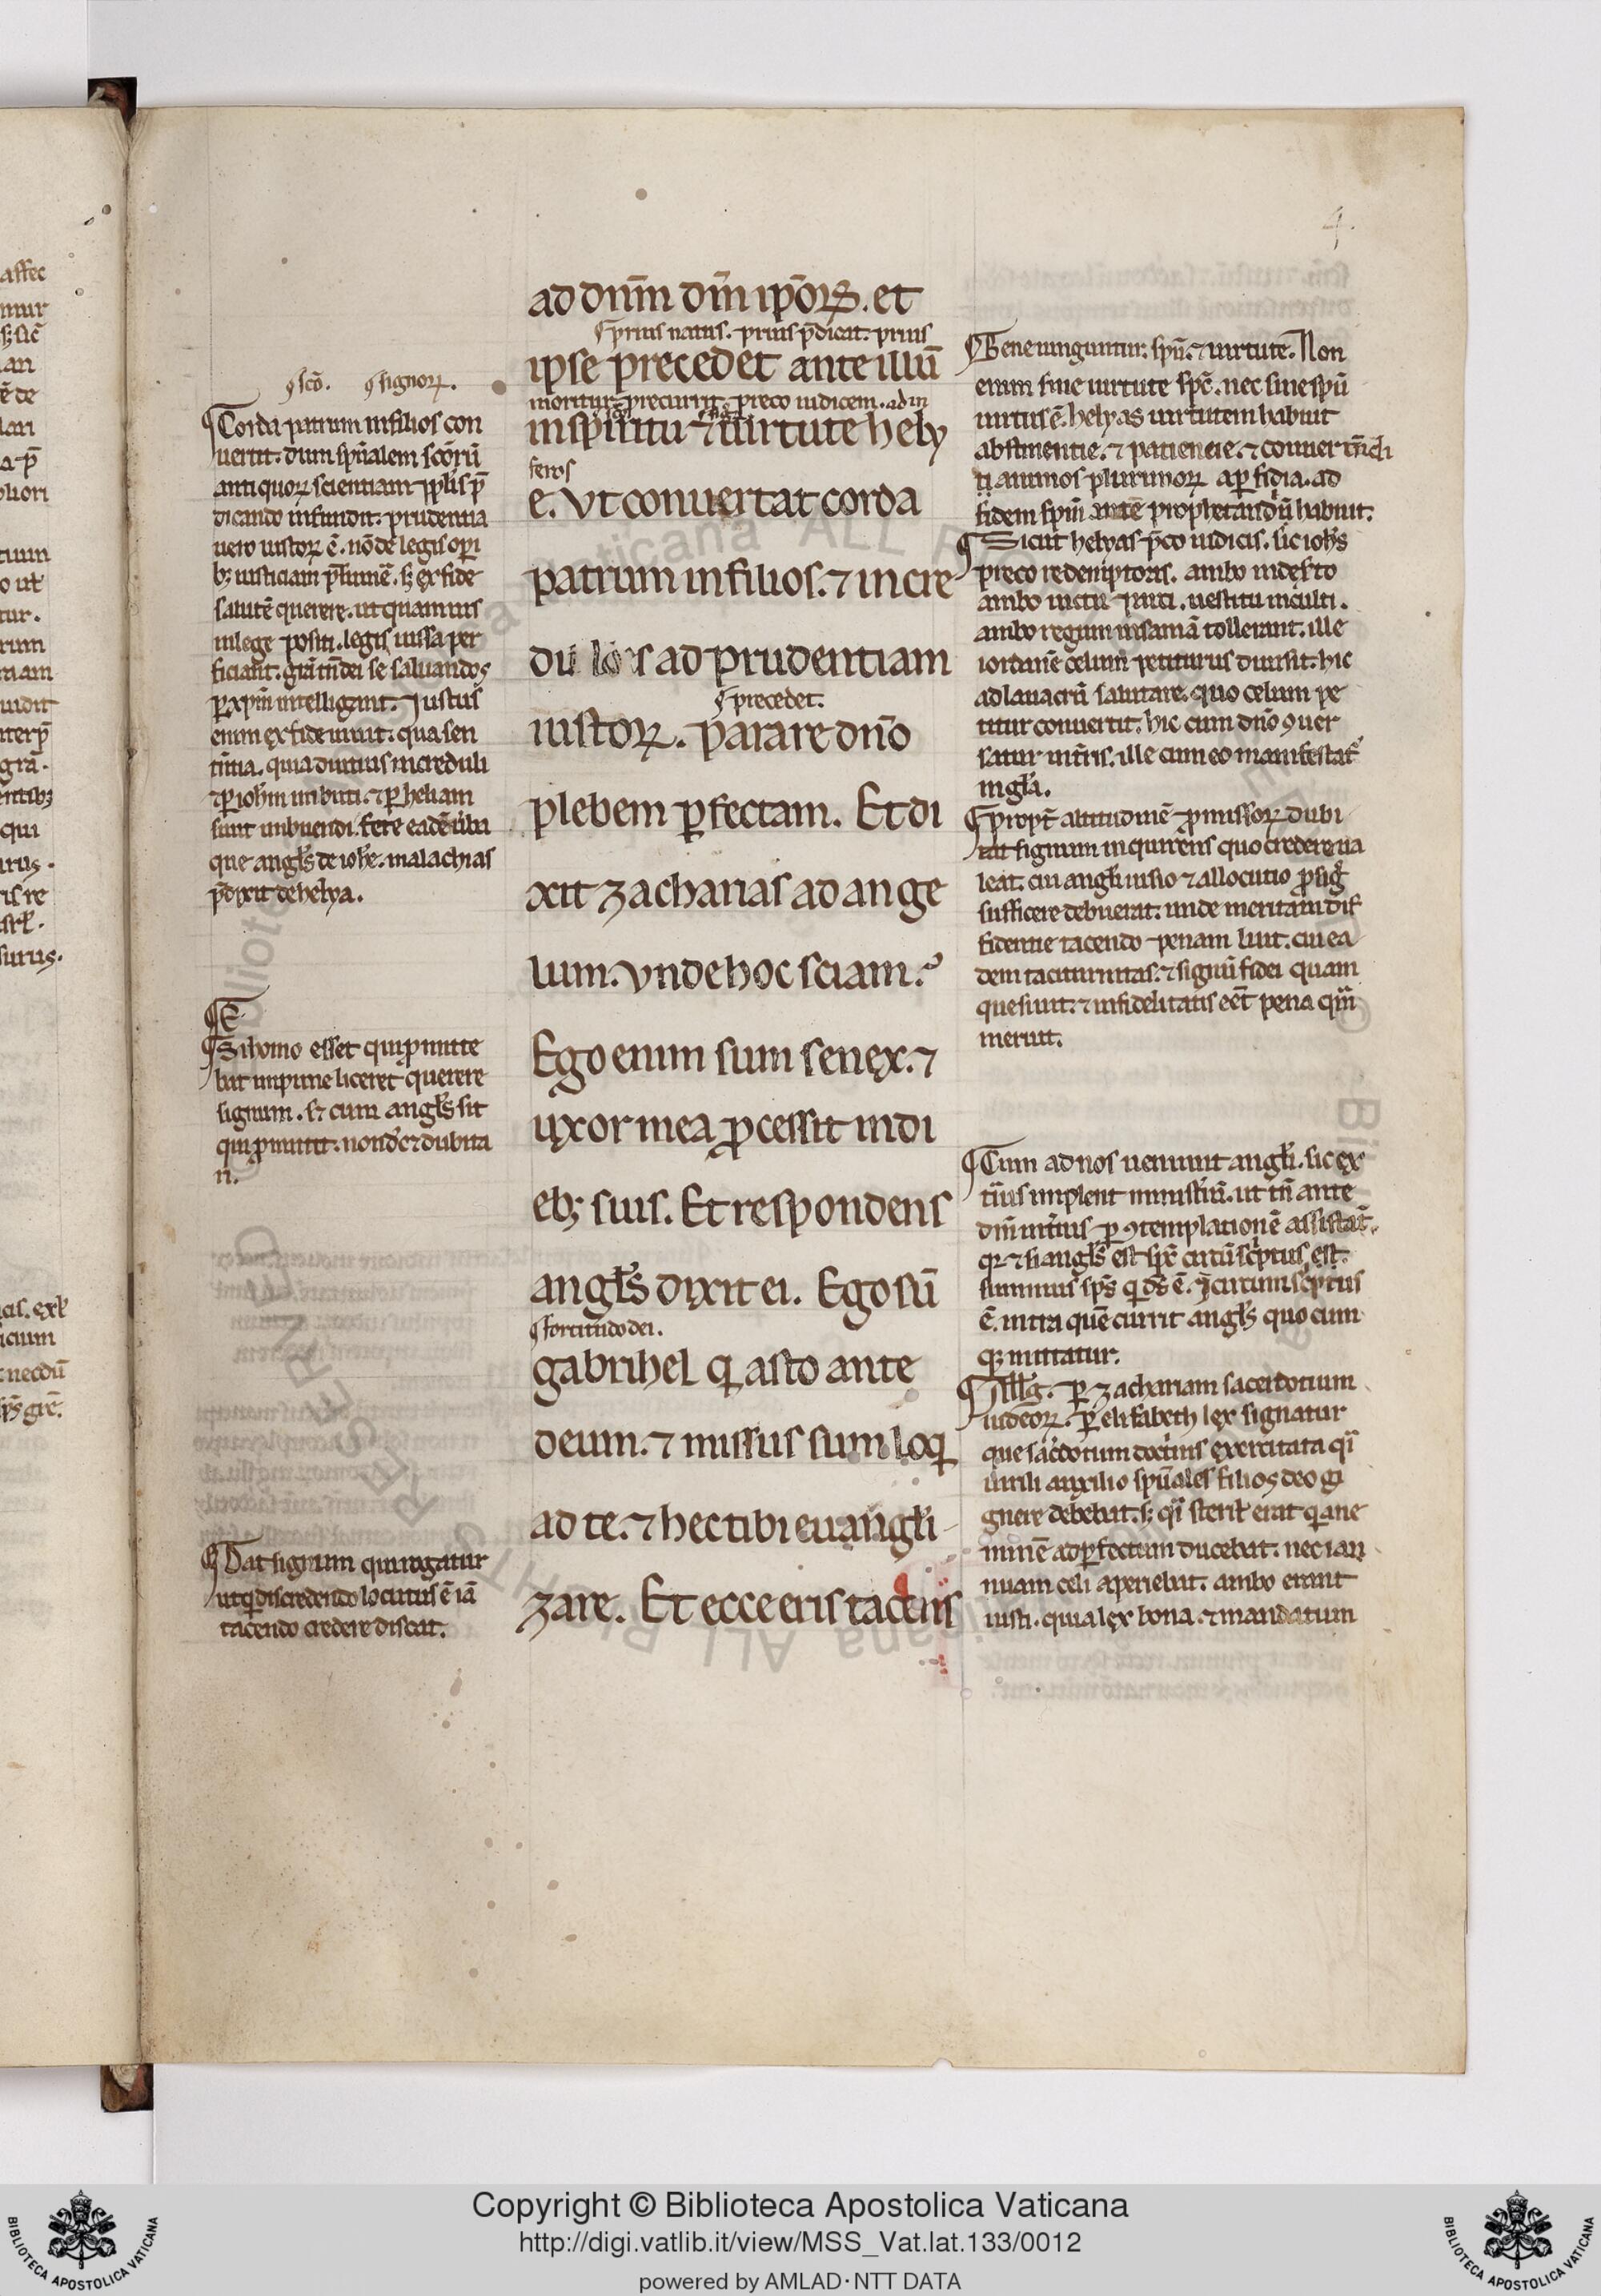 4.
ad dnm̄ dm̄ ip̄oꝝ. et
¶ prius natus. prius p̄dicat. prius
ipse precedet ante illū
moritur. precurrit. preco iudicem. ad in
in spiritu ⁊ uirtute hely
feros
e. Vt conuertat corda
patrum in filios. ⁊ incre
du los ad prudentiam
¶ precedet.
iustoꝝ. parare dn̄o
plebem ꝑfectam. Et di
xit zacharias ad ange
lum. Vnde hoc sciam.
Ego enim sum senex. ⁊
uxor mea ꝓcessit in di
ebꝫ suis. Et respondens
angl̄s dixit ei. Ego sū
¶ fortitudo dei.
gabrihel q̣ asto ante
deum. ⁊ missus sum loq̣
ad te. ⁊ hec tibi euangl̄i
zare. Et ecce eris tacens
¶ sc̄o. ¶ signoꝝ.
¶ Corda patrum in filios con
uertit. dum sp̄ualem sc̄orū
antiquoꝝ scientiam ppl̄is p̄
dicando infundit. prudentia
uero iustoꝝ ē. nō de legis oꝑi
bꝫ iusticiam p̄sumē. sꝫ ex fide
salutē querere. ut quamuis
in lege positi. legis iussa per
ficiant. gr̄a tn̄ dei se saluandos
ꝑ xpm̄ intelligant. Justus
enim ex fide uiuit. qua sen
tentia. quia diutius increduli
⁊ ꝑ ioh̄m imbuti. ⁊ ꝑ heliam
sunt imbuendi. fere eadē uba
que angl̄s de ioh̄e. malachias
p̄dixit de helya.
¶ Si homo esset qui ꝓmitte
bat impune liceret querere
signum. sꝫ cum angl̄s sit
qui ꝓmittit. non dꝫ dubita
ri.
¶ Dat signum qui rogatur
ut q̣ discredendo locutus ē iā
tacendo credere discat.
¶ Bene iunguntur. spū. ⁊ uirtute. Non
enim sine uirtute spc̄. nec sine spū
uirtus ē. helyas uirtutem habuit
abstinentie. ⁊ patiencie. ⁊ conuer tn̄di
ti animos plurimoꝝ a ꝑfidia. ad
fidem spm̄ autē prophetandi habuit.
¶ Sicut helyas p̄co iudicis. sic ioh̄s
preco redemptoris. ambo in deserto
ambo uictu parci. uestitu inculti.
ambo regum insaniā tollerant. ille
iordanē celum petiturus diuisit. hic
ad lauacrū salutare. quo celum pe
titur conuertit. hic cum dn̄o ꝯuer
satur in tr̄is. ille cum eo manifestat̄
in gl̄a.
¶ propt̄ altitudinē ꝓmissoꝝ dubi
tat signum inquirens quo credere ua
leat. cui angl̄i uisio ⁊ allocutio ꝓ sig̅
sufficere debuerat. unde meritam dif
fidentie tacendo penam luit. cui ea
dem taciturnitas. ⁊ signū fidei quam
quesiuit. ⁊ infidelitatis eēt pena qm̄
meruit.
¶ Cum ad nos ueniunt angl̄i. sic ex
t̄ius implent minist̄iū. ut tn̄ ante
dm̄ int̄ius ꝑ ꝯtemplationē assistāt.
qꝫ ⁊ si angl̄s est spc̄ circūscriptus est.
summus sps̄ q̣ ds̄ ē. incircumscriptus
ē. intra quē currit angl̄s quo cum
qꝫ mittatur.
¶ Allḡ. ꝑ zachariam sacerdotium
iudeoꝝ. ꝑ elisabeth lex signatur
que sac̄dotum doct̄nis exercitata qi̅
uirili auxilio sp̄uales filios deo gi
gnere debebat. sꝫ qi̅ steril̄ erat q̣a ne
minē ad ꝑfectum ducebat. nec ian
nuam celi aperiebat. ambo erant
iusti. quia lex bona. ⁊ mandatum
Copyright © Biblioteca Apostolica Vaticana
http://digi.vatlib.it/view/MSS_Vat.lat.133/0012
powered by AMLAD·NTT DATA
BIBLIOTECA APOSTOLICA VATICANA
BIBLIOTECA APOSTOLICA VATICANA